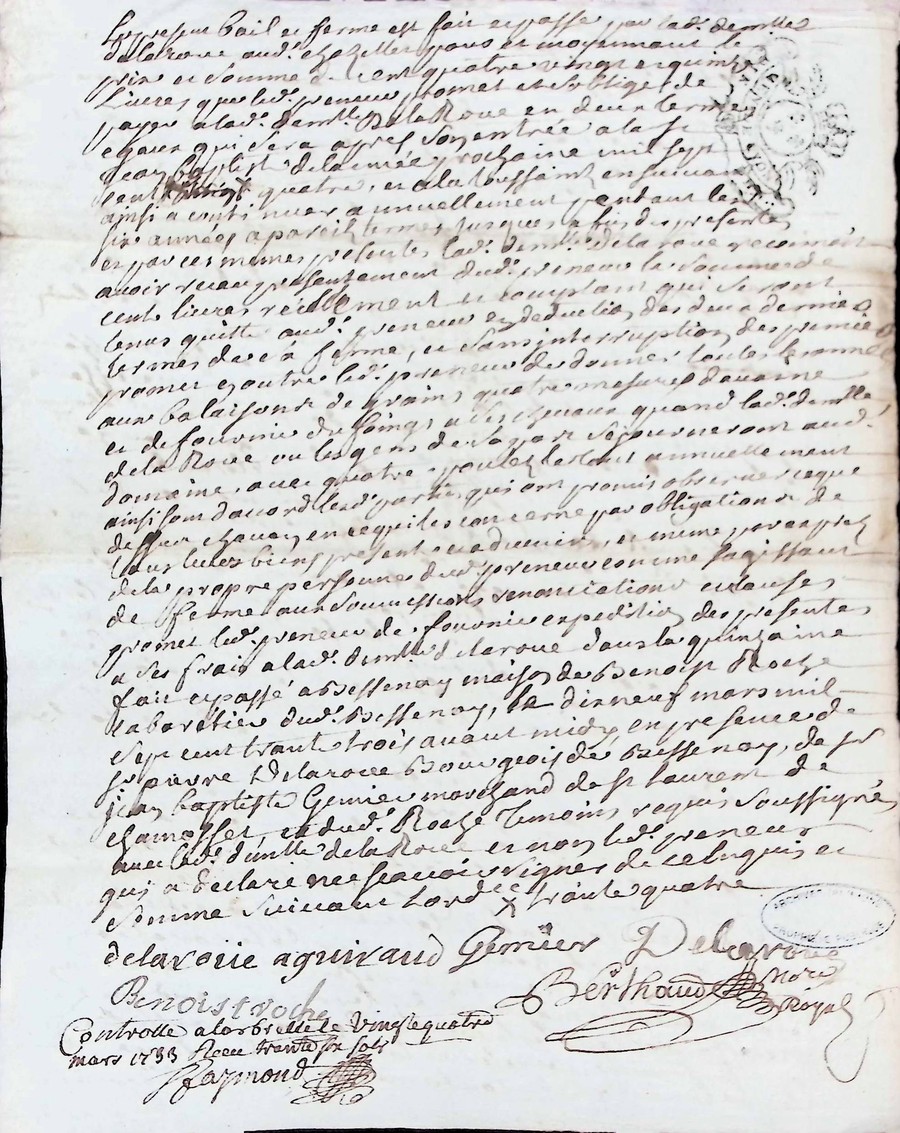 Le present bail et ferme est fait et passé par lad. demlle
Delaroue aud. chazelles pour et moyennant le
prix et somme de cent quatre vingt et quinze
Livres que led. preneur promet et soblige de
payer a lad. demlle. Delaroue en deux termes
egaux qui sera apres son entrée a la st
Jean baptiste de lannée prochaine mil sept
cent quatre, et a la toussaint ensuivant
ainsi a continuer annuellement pendant les
six années a pareils termes jusques a fin des presentes
et par ces memes presentes lad. demlle. delaroue reconnoit
avoir receu presentement dud. preneur la somme de
cent livres réellement et comptant qui seront
tenus quitte aud. preneur en deduction des deux derniers
termes de ferme, et sans interruption des premie
promet en outre led. preneur de donner toutes les années
aux de grains quatre mesures davoine
et de fournir du foing a les chevaux quand lad. demlle
de la Roue ou les gens de sa part séjourneront aud.
domaine, avec quatre poulets le tout annuellement
ainsi sont daccord lesd. parties qui ont promis observer ce que
dessus chacun en ce qui les concerne par obligation de
tous leurs biens presents et advenir, et meme par exprès
de la propre personne dud. preneur comme sagissant
de ferme aux soumissions renonciations et clauses
promet led. preneur de fournir expedition des presentes
a ses frais a lad. demlle. delaroue dans la quinzaine
fait et passé a Bessenay maison de Benoist Roche
cabaretier dud. Bessenay, le dix neuf mars mil
sept cent trante trois avant midy en presence de
sr. pierre Delaroue Bourgeois de Bessenay, de sr
jean baptiste Genier marchand de st Laurent de
chamosset, et dud. Roche Temoins requis soussignés
avec led. demlle delaRoue et non led. preneur
qui a declaré ne scavoir signer de ce enquis et
sommé suivant lord.ce x trante quatre
delaroüe aguiraud Genier Delaroue
Benoist roche Berthaud Nore Royal
Controllé a larbrelle le vingt quatre
mars 1733 Receu trente six sols
Raymond